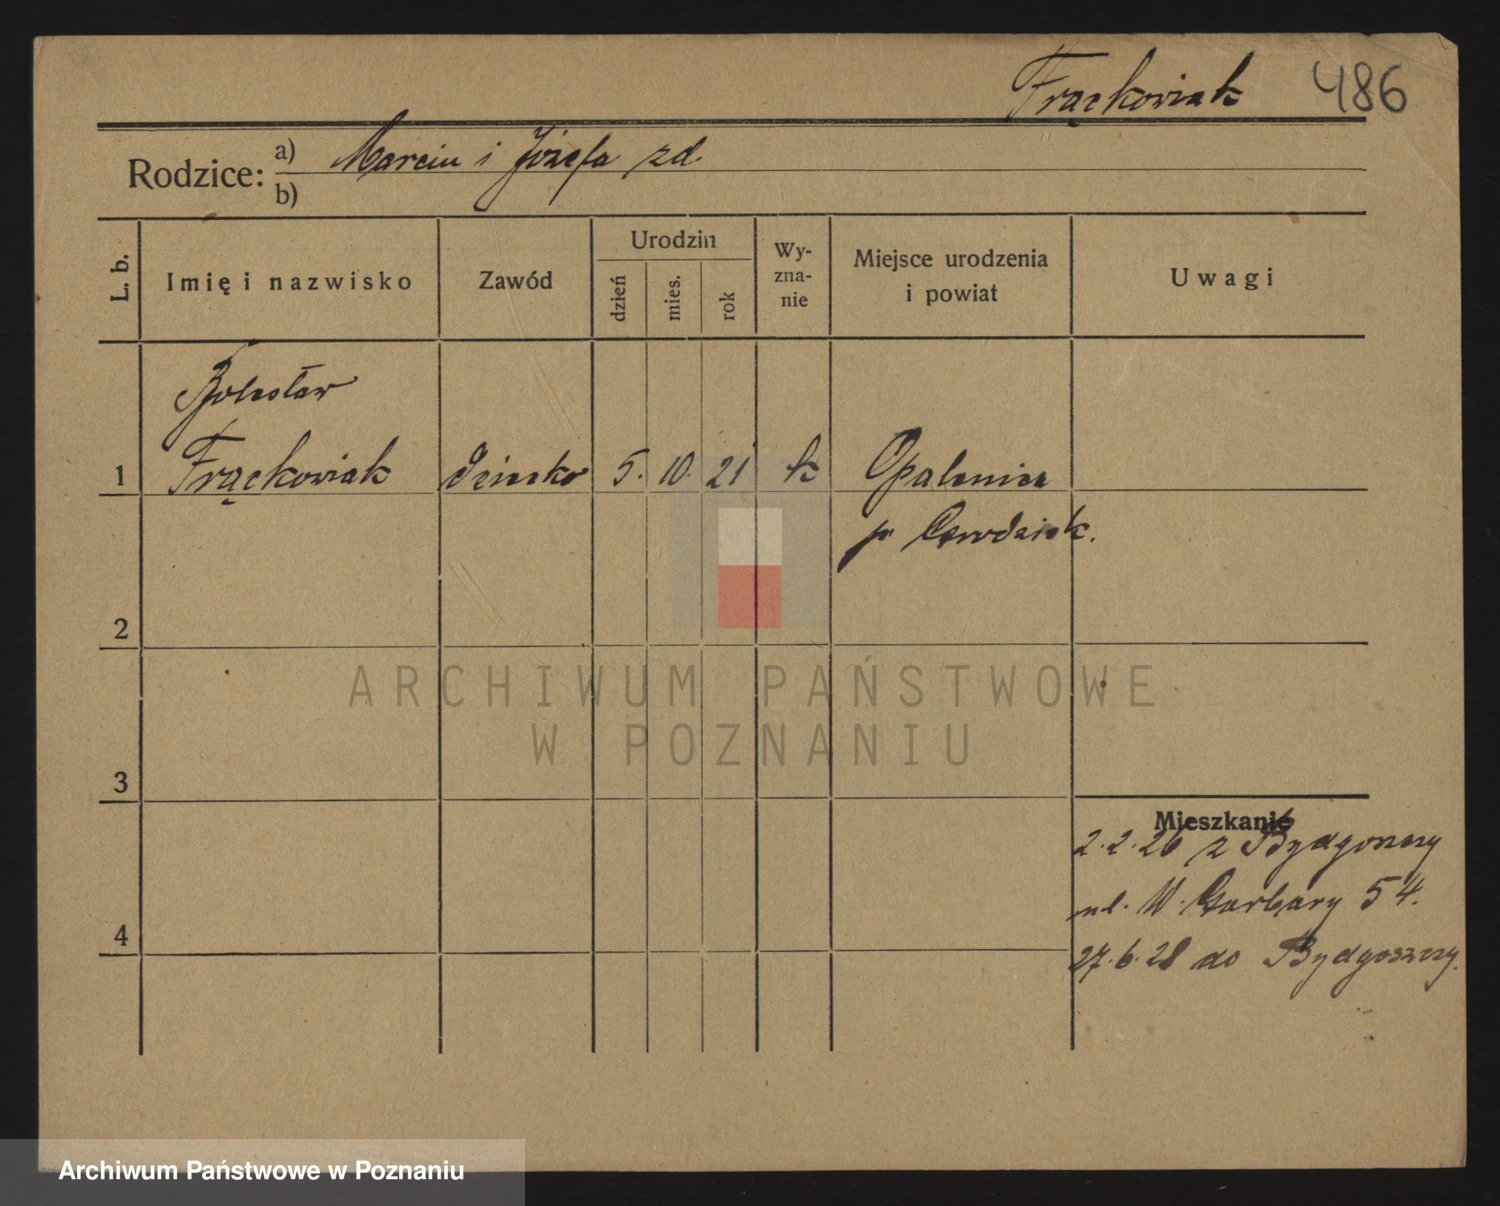 Frąckowiak 486
Rodzice: a) Marcin i Józefa zd.
b)
L. b.
Imię i nazwisko
Zawód
Urodzin
dzień
mies.
rok
Wy-
zna-
nie
Miejsce urodzenia
i powiat
Uwagi
Bolesław
1 Frąckowiak dziecko 5. 10. 21 k Opalenica
p.
2
3
Mieszkanie
2.2.26 z Bydgoszczy
ul. W. Garbary 54.
4
27.6.28 do Bydgoszczy.
ARCHIWUM PAŃSTWOWE
W POZNANIU
Archiwum Państwowe w Poznaniu